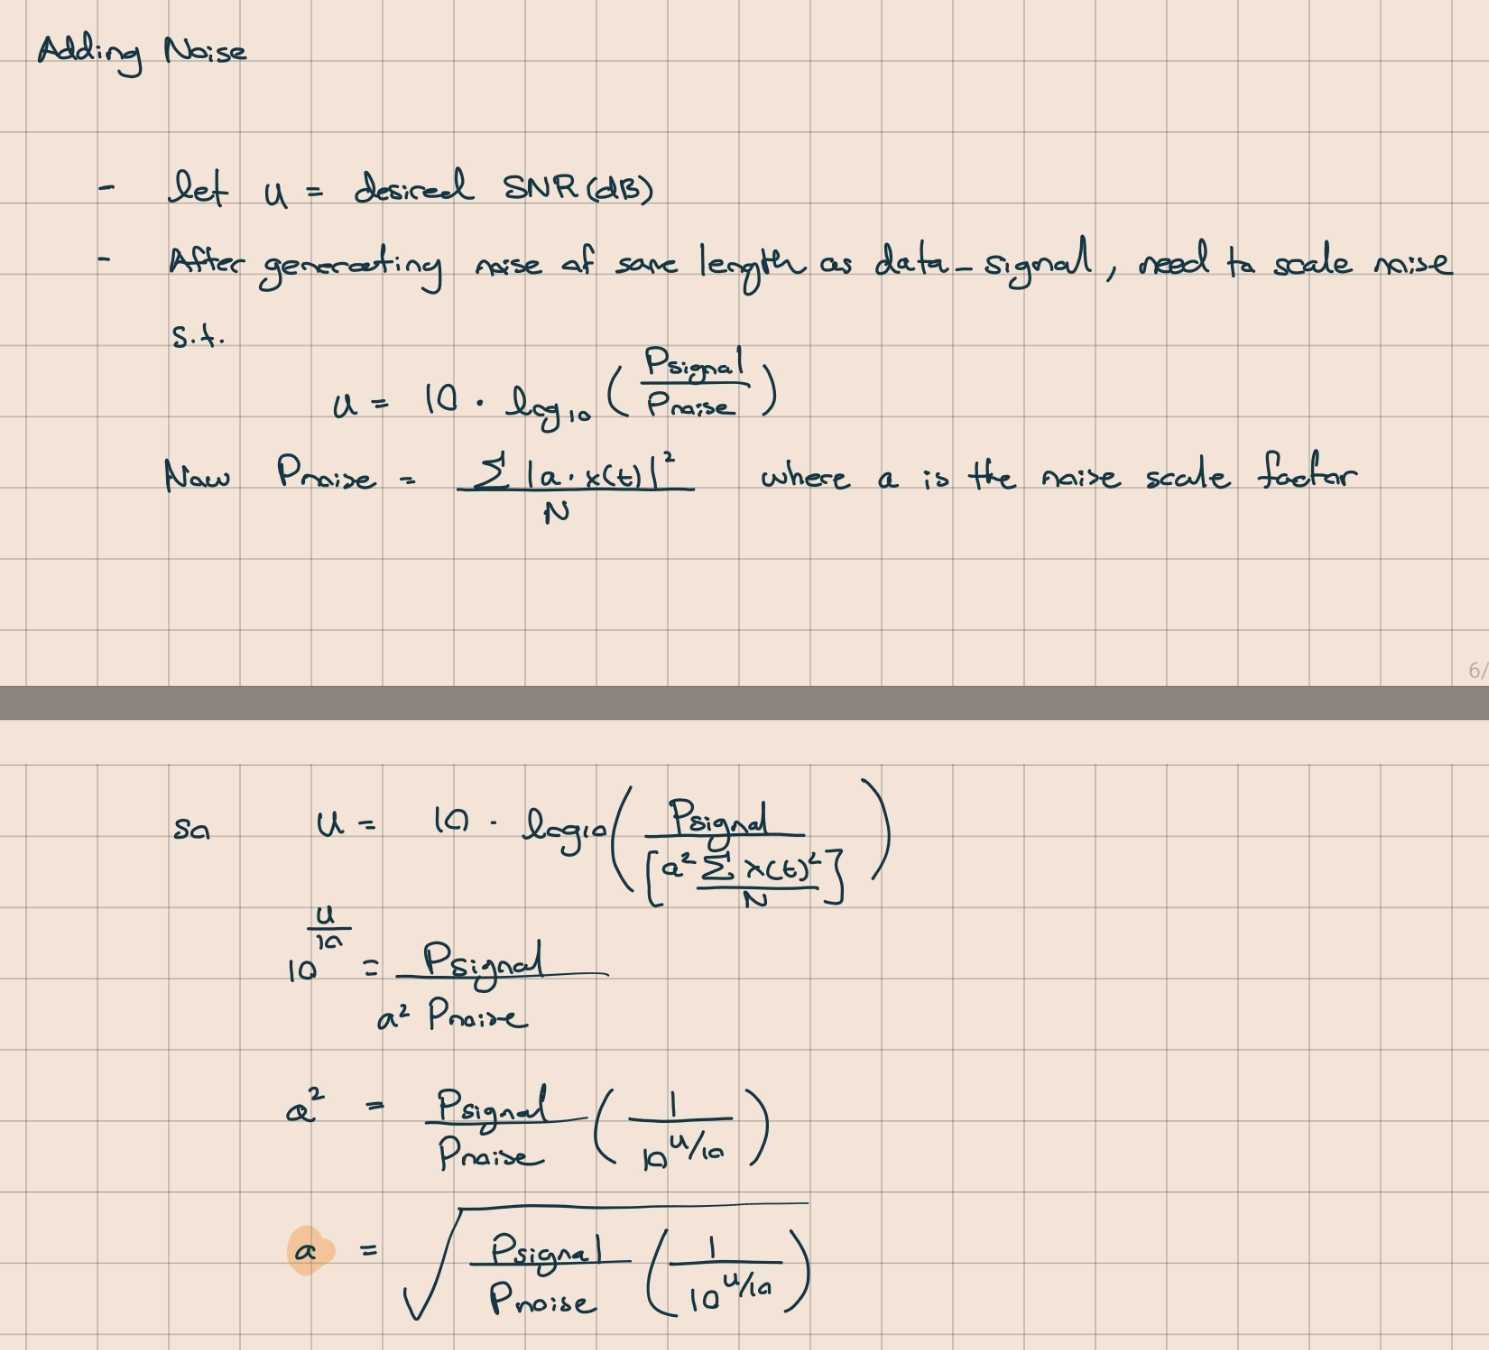 Adding Noise
- let u = desired SNR(dB)
- After generating noise of same length as data-signal, need to scale noise
s.t.
u = 10 · log₁₀ (Psignal / Pnoise)
Now Pnoise = Σ |a · x(t)|² / N where a is the noise scale factor
6/
so u = 10 · log₁₀ (Psignal / [a² Σ x(t)² / N])
10^(u/10) = Psignal / a² Pnoise
a² = Psignal / Pnoise (1 / 10^(u/10))
a = √(Psignal / Pnoise (1 / 10^(u/10)))